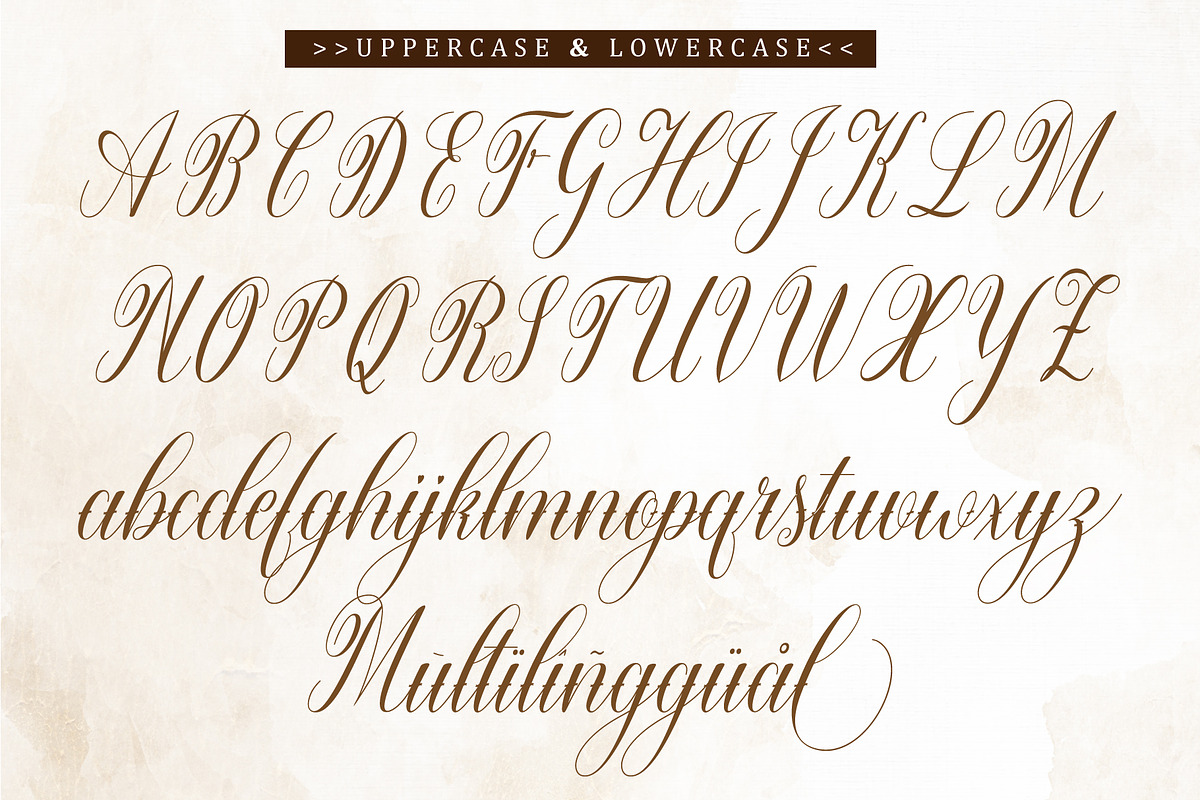 >>UPPERCASE & LOWERCASE<<
ABCDEFGHIJKLM
NOPQRSTUVWXYZ
abcdefghijklmnopqrstuvwxyz
Mùltïlîñggüål